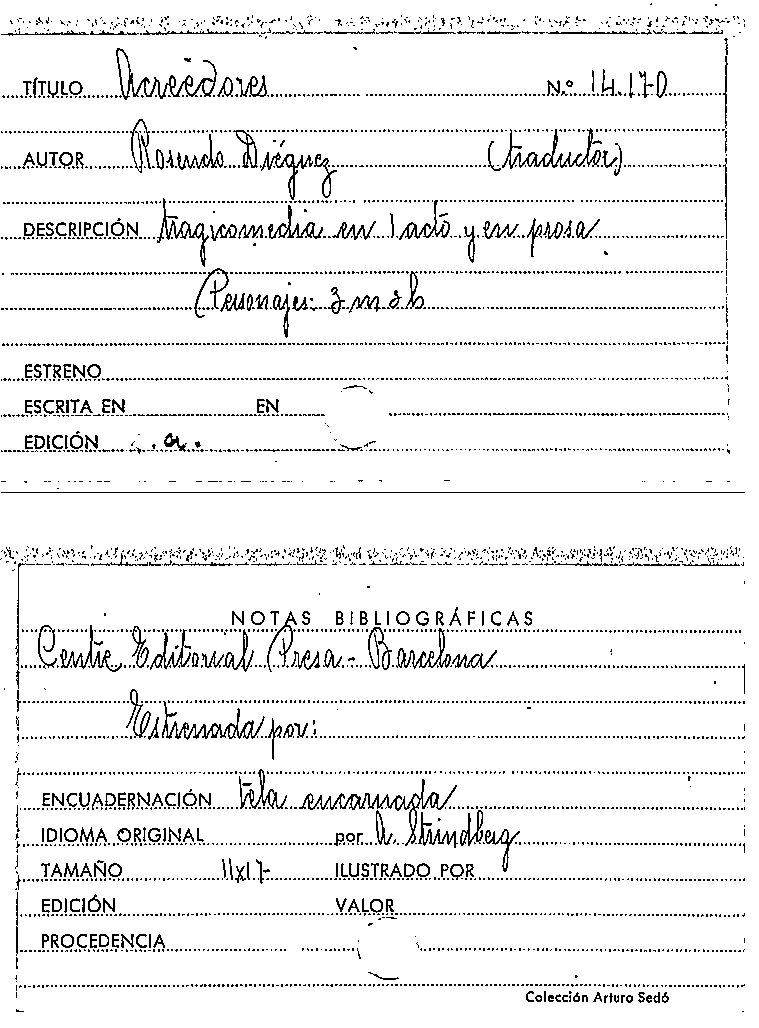 TÍTULO Acreedores N.º 14.170
AUTOR Rosendo Diéguez (traductor)
DESCRIPCIÓN tragicomedia en 1 acto y en prosa.
Personajes: 3 m 2 h
ESTRENO
ESCRITA EN EN
EDICIÓN s.a.
NOTAS BIBLIOGRÁFICAS
Centre Editorial Presa - Barcelona
Estrenada por:
ENCUADERNACIÓN tela encarnada
IDIOMA ORIGINAL por A. Strindberg
TAMAÑO 11x17 ILUSTRADO POR
EDICIÓN VALOR
PROCEDENCIA
Colección Arturo Sedó